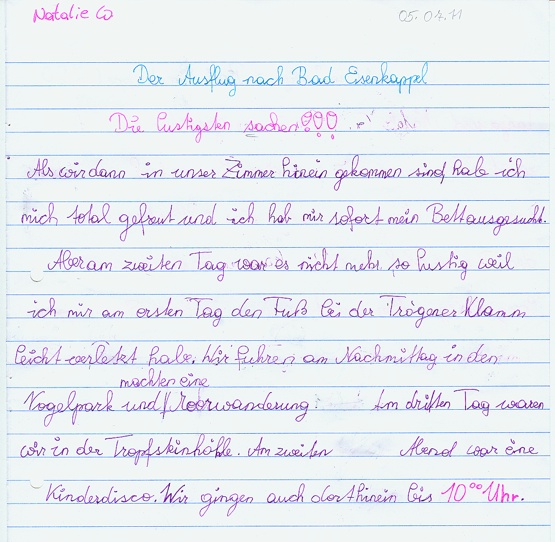 Natalie W
05.04.11
Der Ausflug nach Bad Eisenkappl
Die lustigsten sachen!!!
Als wir dann in unser Zimmer hinein gekommen sind, habe ich
mich total gefreut und ich hab mir sofort mein Bett ausgesucht.
Aber am zweiten Tag war es nicht mehr so lustig weil
ich mir am ersten Tag den Fuß bei der Trögener Klamm
leicht verletzt habe. Wir fuhren am Nachmittag in den
machten eine
Vogelpark und Moorwanderung. Am dritten Tag waren
wir in der Tropfsteinhöhle. Am zweiten Abend war eine
Kinderdisco. Wir gingen auch dorthinein bis 10⁰⁰ Uhr.